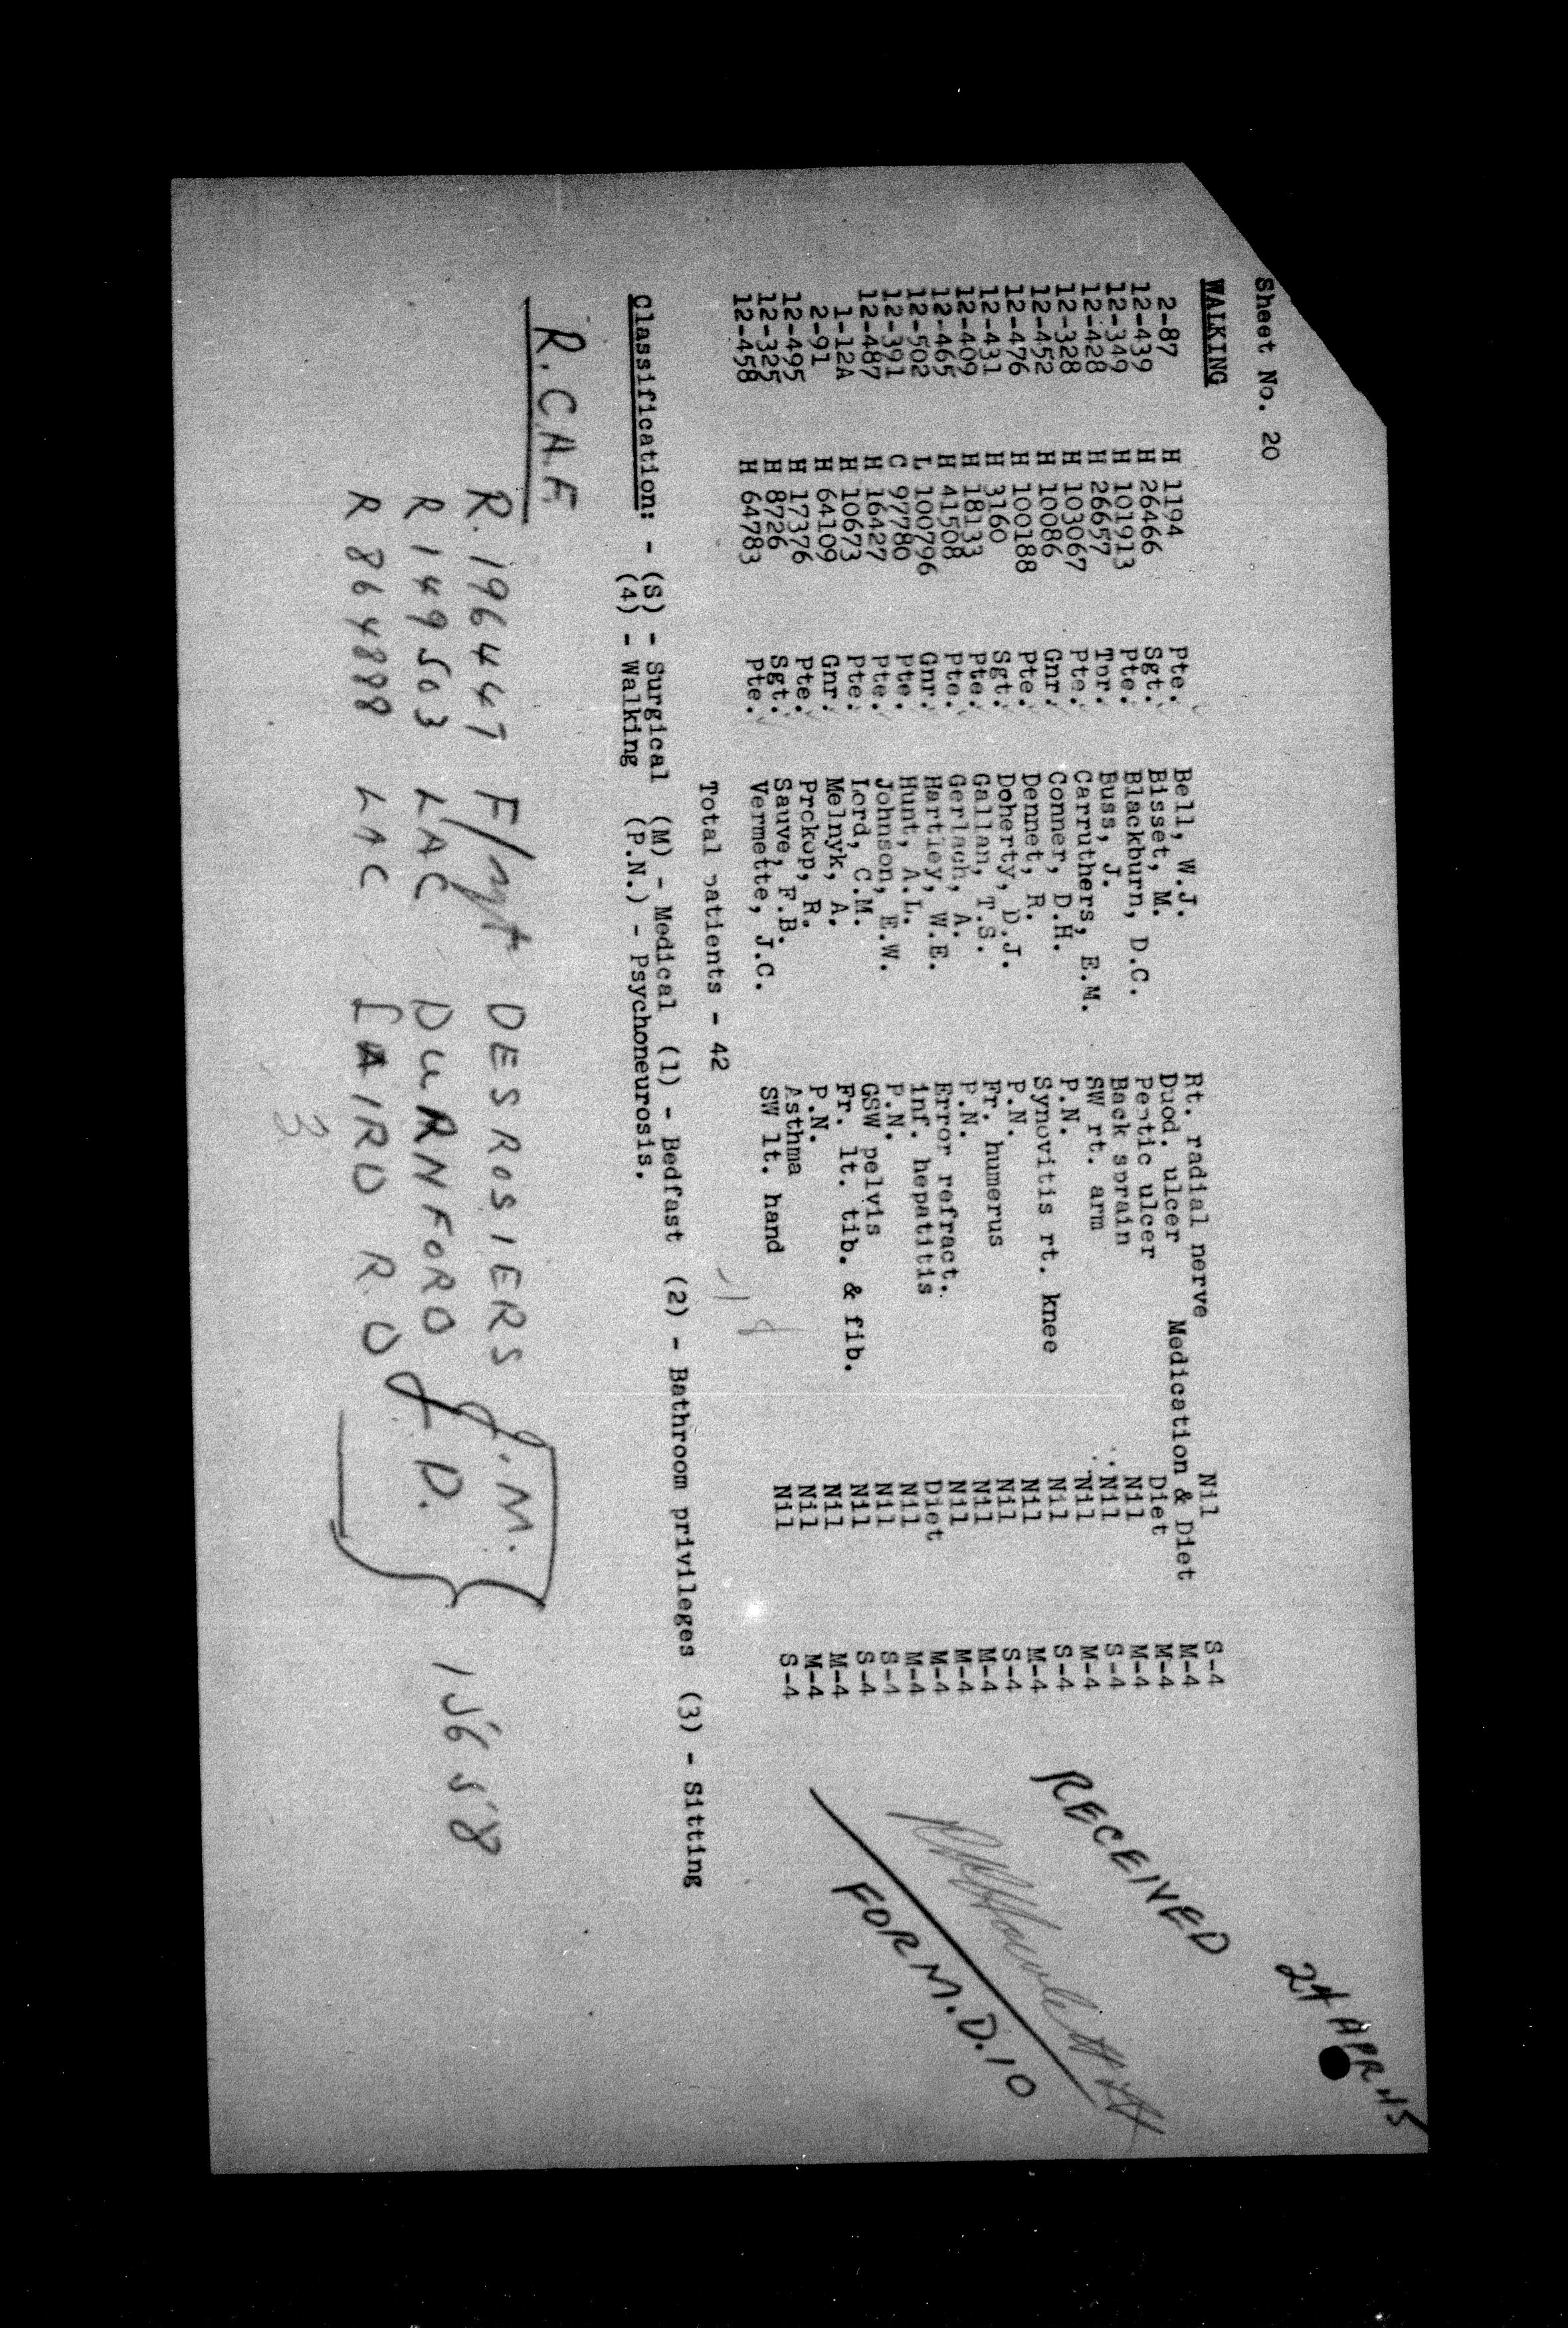 24 APR 45
Sheet No. 20
WALKING
RECEIVED
2-87 H 1194 Pte. Bell, W.J. Rt. radial nerve Nil S-4
12-439 H 26466 Sgt. Bisset, M. Duod. ulcer Medication & Diet M-4
12-349 H 101913 Pte. Blackburn, D.C. Peptic ulcer Diet M-4
12-428 H 26657 Tpr. Buss, J. Back sprain Nil M-4
12-328 H 103067 Pte. Carruthers, E.M. SW rt. arm Nil S-4
12-452 H 10086 Gnr. Conner, D.H. P.N. Nil M-4
12-476 H 100188 Pte. Dennet, R. Synovitis rt. knee Nil S-4
12-431 H 3160 Sgt. Doherty, D.J. P.N. Nil M-4
12-409 H 18133 Pte. Gallan, T.S. Fr. humerus Nil S-4
12-465 H 41508 Pte. Gerlach, A. P.N. Nil M-4
12-502 L 100796 Gnr. Hartley, W.E. Error refract. Nil M-4
12-391 C 97780 Pte. Hunt, A.L. Inf. hepatitis Diet M-4
12-487 H 16427 Pte. Johnson, E.W. P.N. Nil M-4
1-12A H 10673 Pte. Lord, C.M. GSW pelvis Nil S-4
2-91 H 64109 Gnr. Melnyk, A. Fr. lt. tib. & fib. Nil S-4
12-495 H 17376 Pte. Prokop, R. P.N. Nil M-4
12-325 H 8726 Sgt. Sauve, F.B. Asthma Nil M-4
12-458 H 64783 Pte. Vermette, J.C. SW lt. hand Nil S-4
FOR M.D. 10
Total patients - 42
Classification: - (S) - Surgical (M) - Medical (1) - Bedfast (2) - Bathroom privileges (3) - Sitting
(4) - Walking (P.N.) - Psychoneurosis.
R.C.A.F.
R. 196447 F/Sgt DESROSIERS J.M.
R 149503 LAC DURNFORD J. D. 15658
R 864888 LAC LAIRD R.O
3